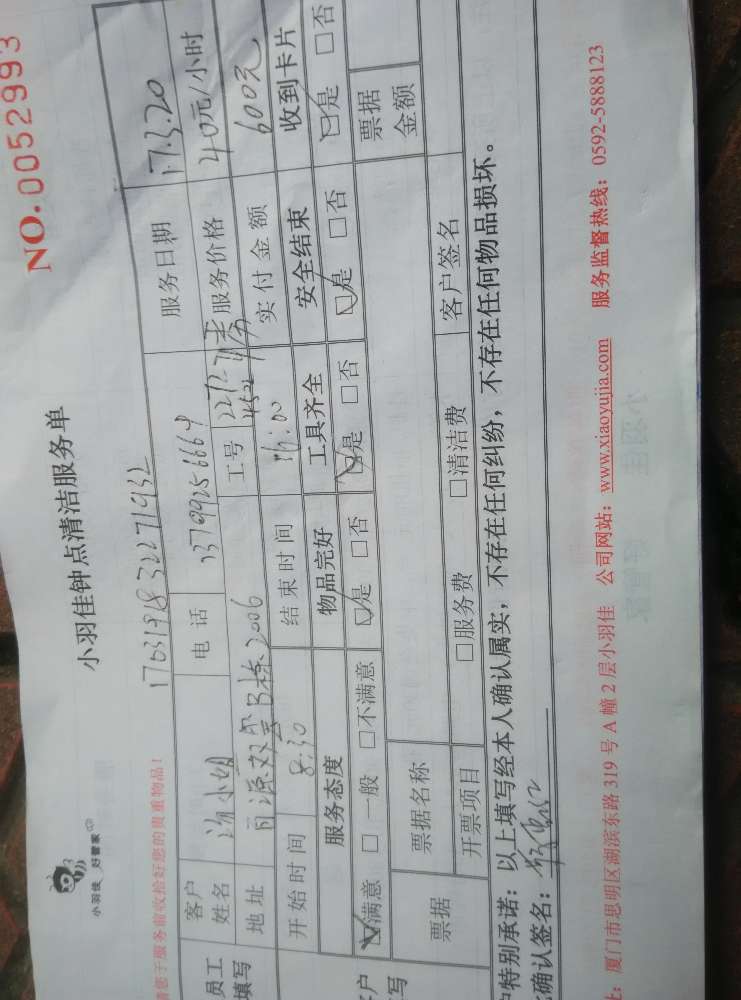 NO.0052993
小羽佳钟点清洁服务单
小羽佳 好管家
请您于服务前收拾好您的贵重物品!
17031918322271932
员工填写
客户姓名 小姐 电话 13799256664 服务日期 17.3.20
地址 2006 工号 服务价格 40元/小时
开始时间 8:30 结束时间 16:00 实付金额 600元
服务态度 物品完好 工具齐全 安全结束 收到卡片
☑满意 □一般 □不满意 ☑是 □否 ☑是 □否 ☑是 □否 ☑是 □否
票据 票据名称 票据金额
开票项目 □服务费 □清洁费 客户签名
特别承诺:以上填写经本人确认属实,不存在任何纠纷,不存在任何物品损坏。
确认签名:
厦门市思明区湖滨东路 319 号 A 幢 2 层小羽佳 公司网站:www.xiaoyujia.com 服务监督热线:0592-5888123